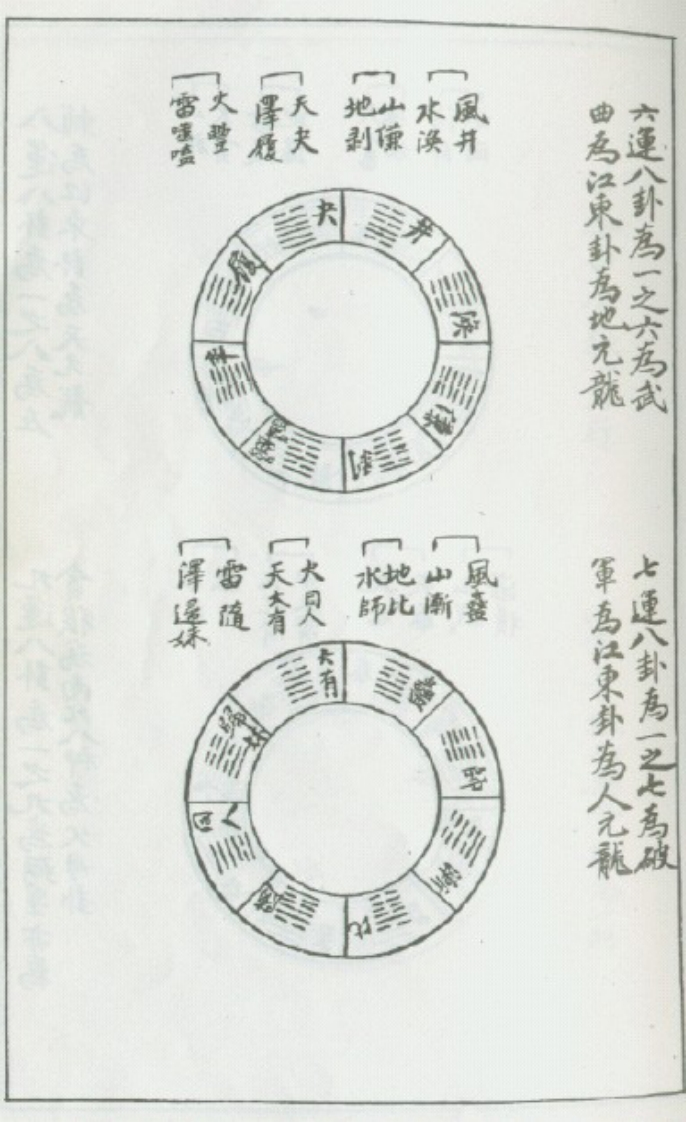 六運八卦為一之六為武
曲為江東卦為地元龍
風井
水渙
山謙
地剥
天夬
澤履
火豐
雷噬嗑
井
渙
謙
剝
噬嗑
豐
履
夬
七運八卦為一之七為破
軍為江東卦為人元龍
風蠱
山漸
地比
水師
火同人
天大有
雷隨
澤歸妹
蠱
師
漸
比
隨
同人
歸妹
大有